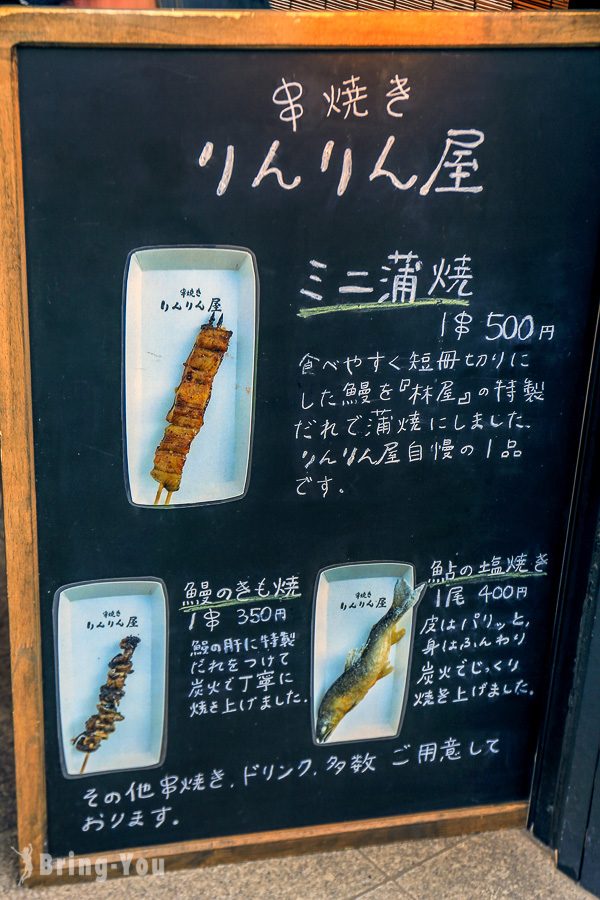 串焼き
りんりん屋
串焼き
りんりん屋
ミニ蒲焼
1串 500円
食べやすく短冊切りに
した鰻を『林屋』の特製
だれで蒲焼にしました。
りんりん屋自慢の1品
です。
串焼き
りんりん屋
鰻のきも焼
1串 350円
鰻の肝に特製
だれをつけて
炭火で丁寧に
焼き上げました。
串焼き
りんりん屋
鮎の塩焼き
1尾 400円
皮はパリッと、
身はふんわり
炭火でじっくり
焼き上げました。
その他串焼き、ドリンク、多数 ご用意して
おります。
Bring-You